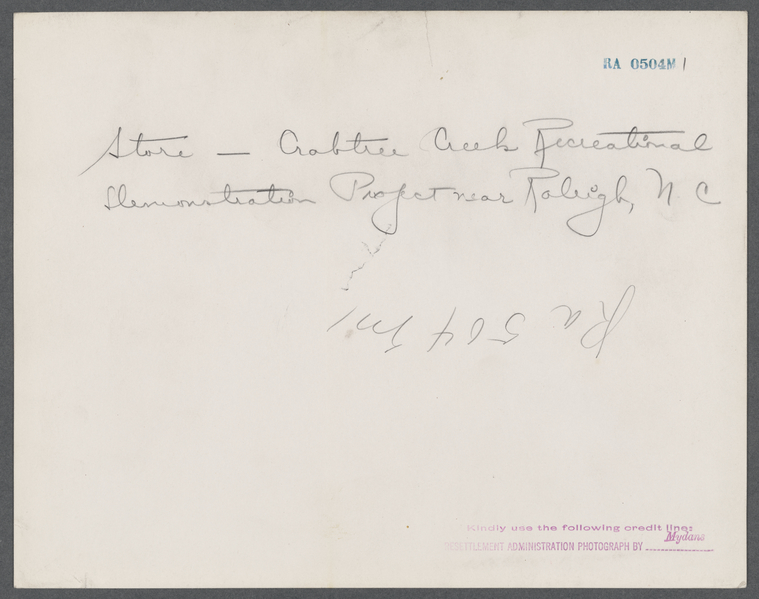 RA 0504M1
Store — Crabtree Creek Recreational
Demonstration Project near Raleigh, N C
Ra 504 M1
Kindly use the following credit line:
RESETTLEMENT ADMINISTRATION PHOTOGRAPH BY Mydans